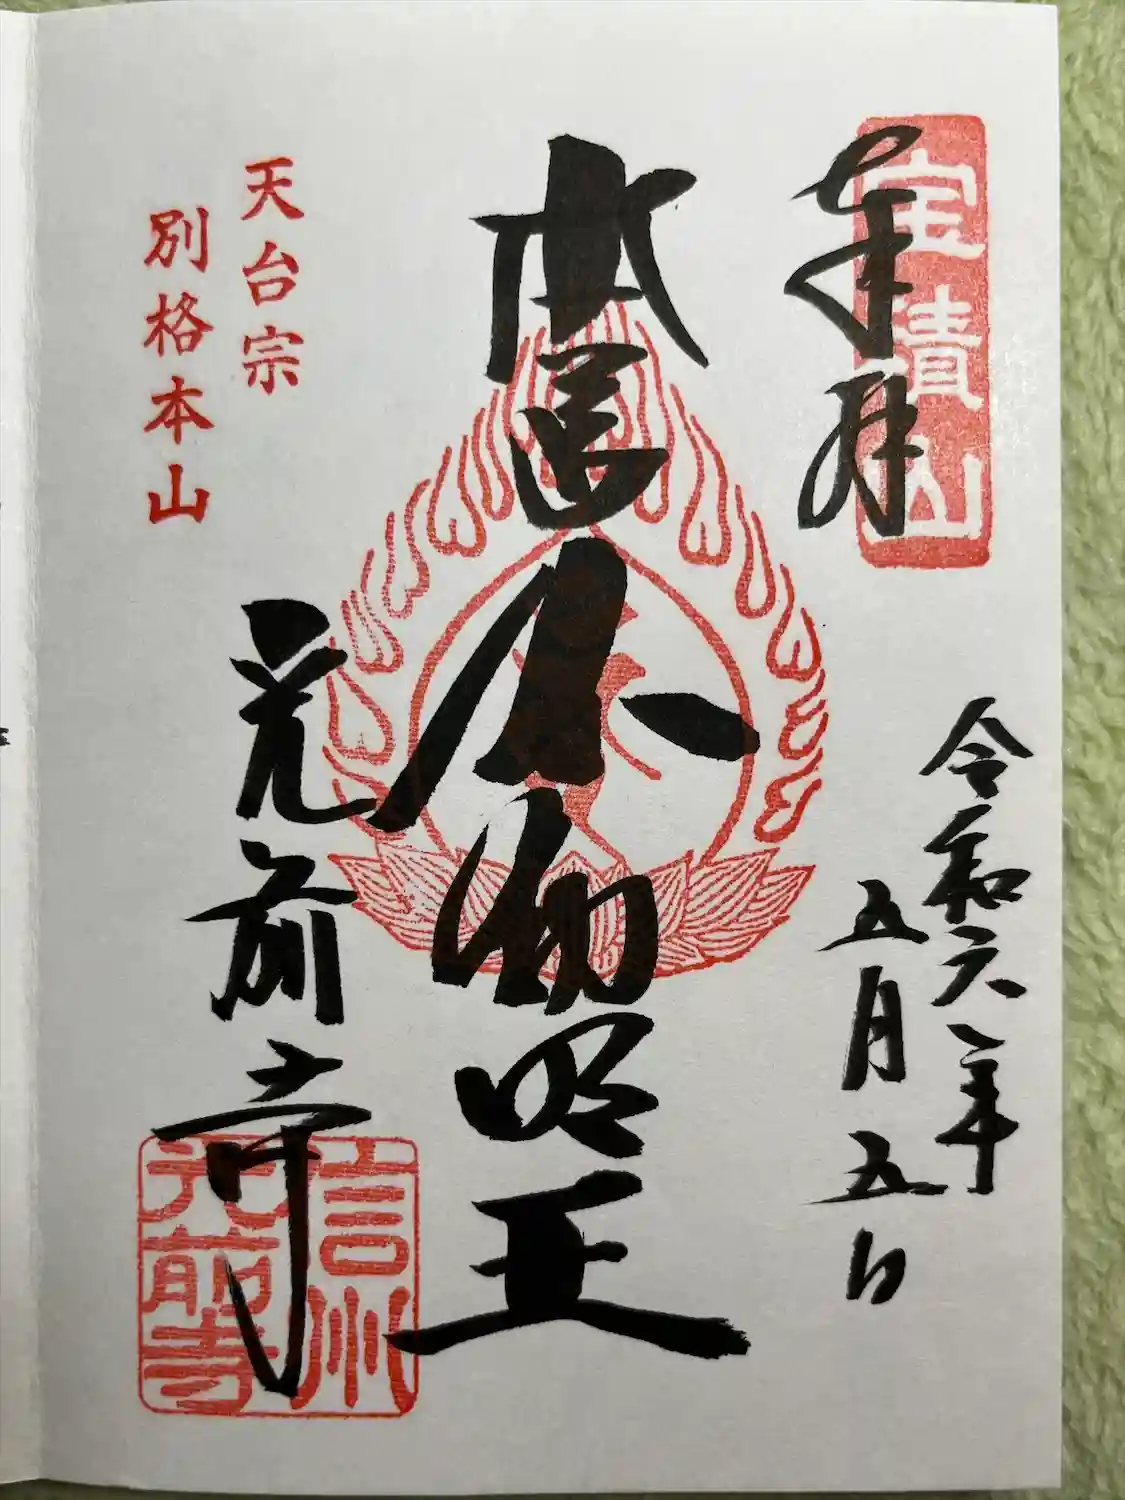 宝積山
奉拝
令和六年
五月五日
本尊不動明王
天台宗
別格本山
光前寺
信州
光前寺